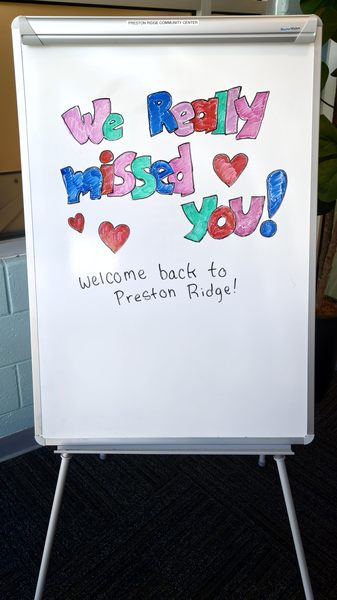 PRESTON RIDGE COMMUNITY CENTER
We Really
missed
you!
Welcome back to
Preston Ridge!